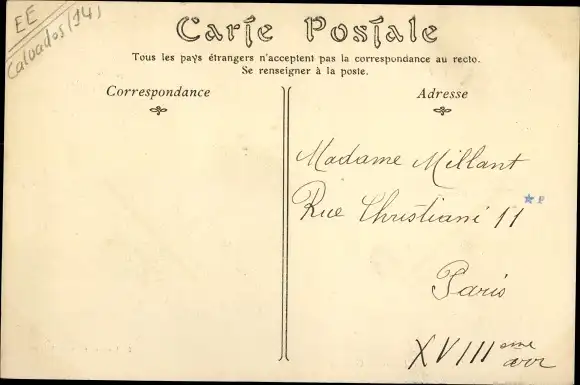 EE
Calvados (14)
Carte Postale
Tous les pays étrangers n'acceptent pas la correspondance au recto.
Se renseigner à la poste.
Correspondance
Adresse
Madame Millant
Rue Christiani 11
Paris
XVIII eme arr